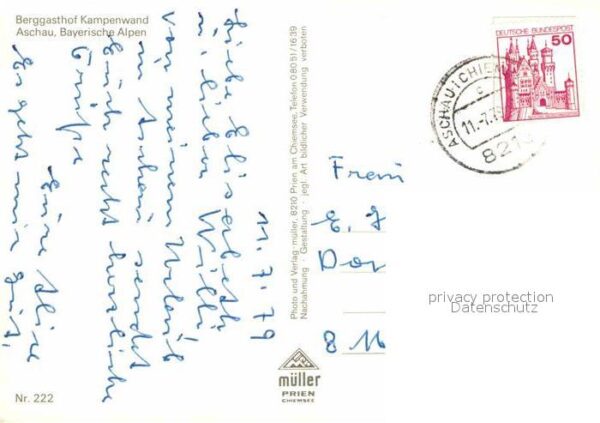 Berggasthof Kampenwand
Aschau, Bayerische Alpen
11.7.79
Liebe Elisabeth,
lieber Willi
von meinem Urlaub
in Aschau sendet
Euch recht herzliche
Grüße
Eure
mir gut,
Photo und Verlag müller, 8210 Prien am Chiemsee, Telefon 08051/1639
Nachahmung · Gestaltung · jegl. Art bildlicher Verwendung verboten
müller
PRIEN
CHIEMSEE
Nr. 222
DEUTSCHE BUNDESPOST
50
ASCHAU i CHIEM
c
11.-7.7
821
E. J
Dor
8 M
privacy protection
Datenschutz